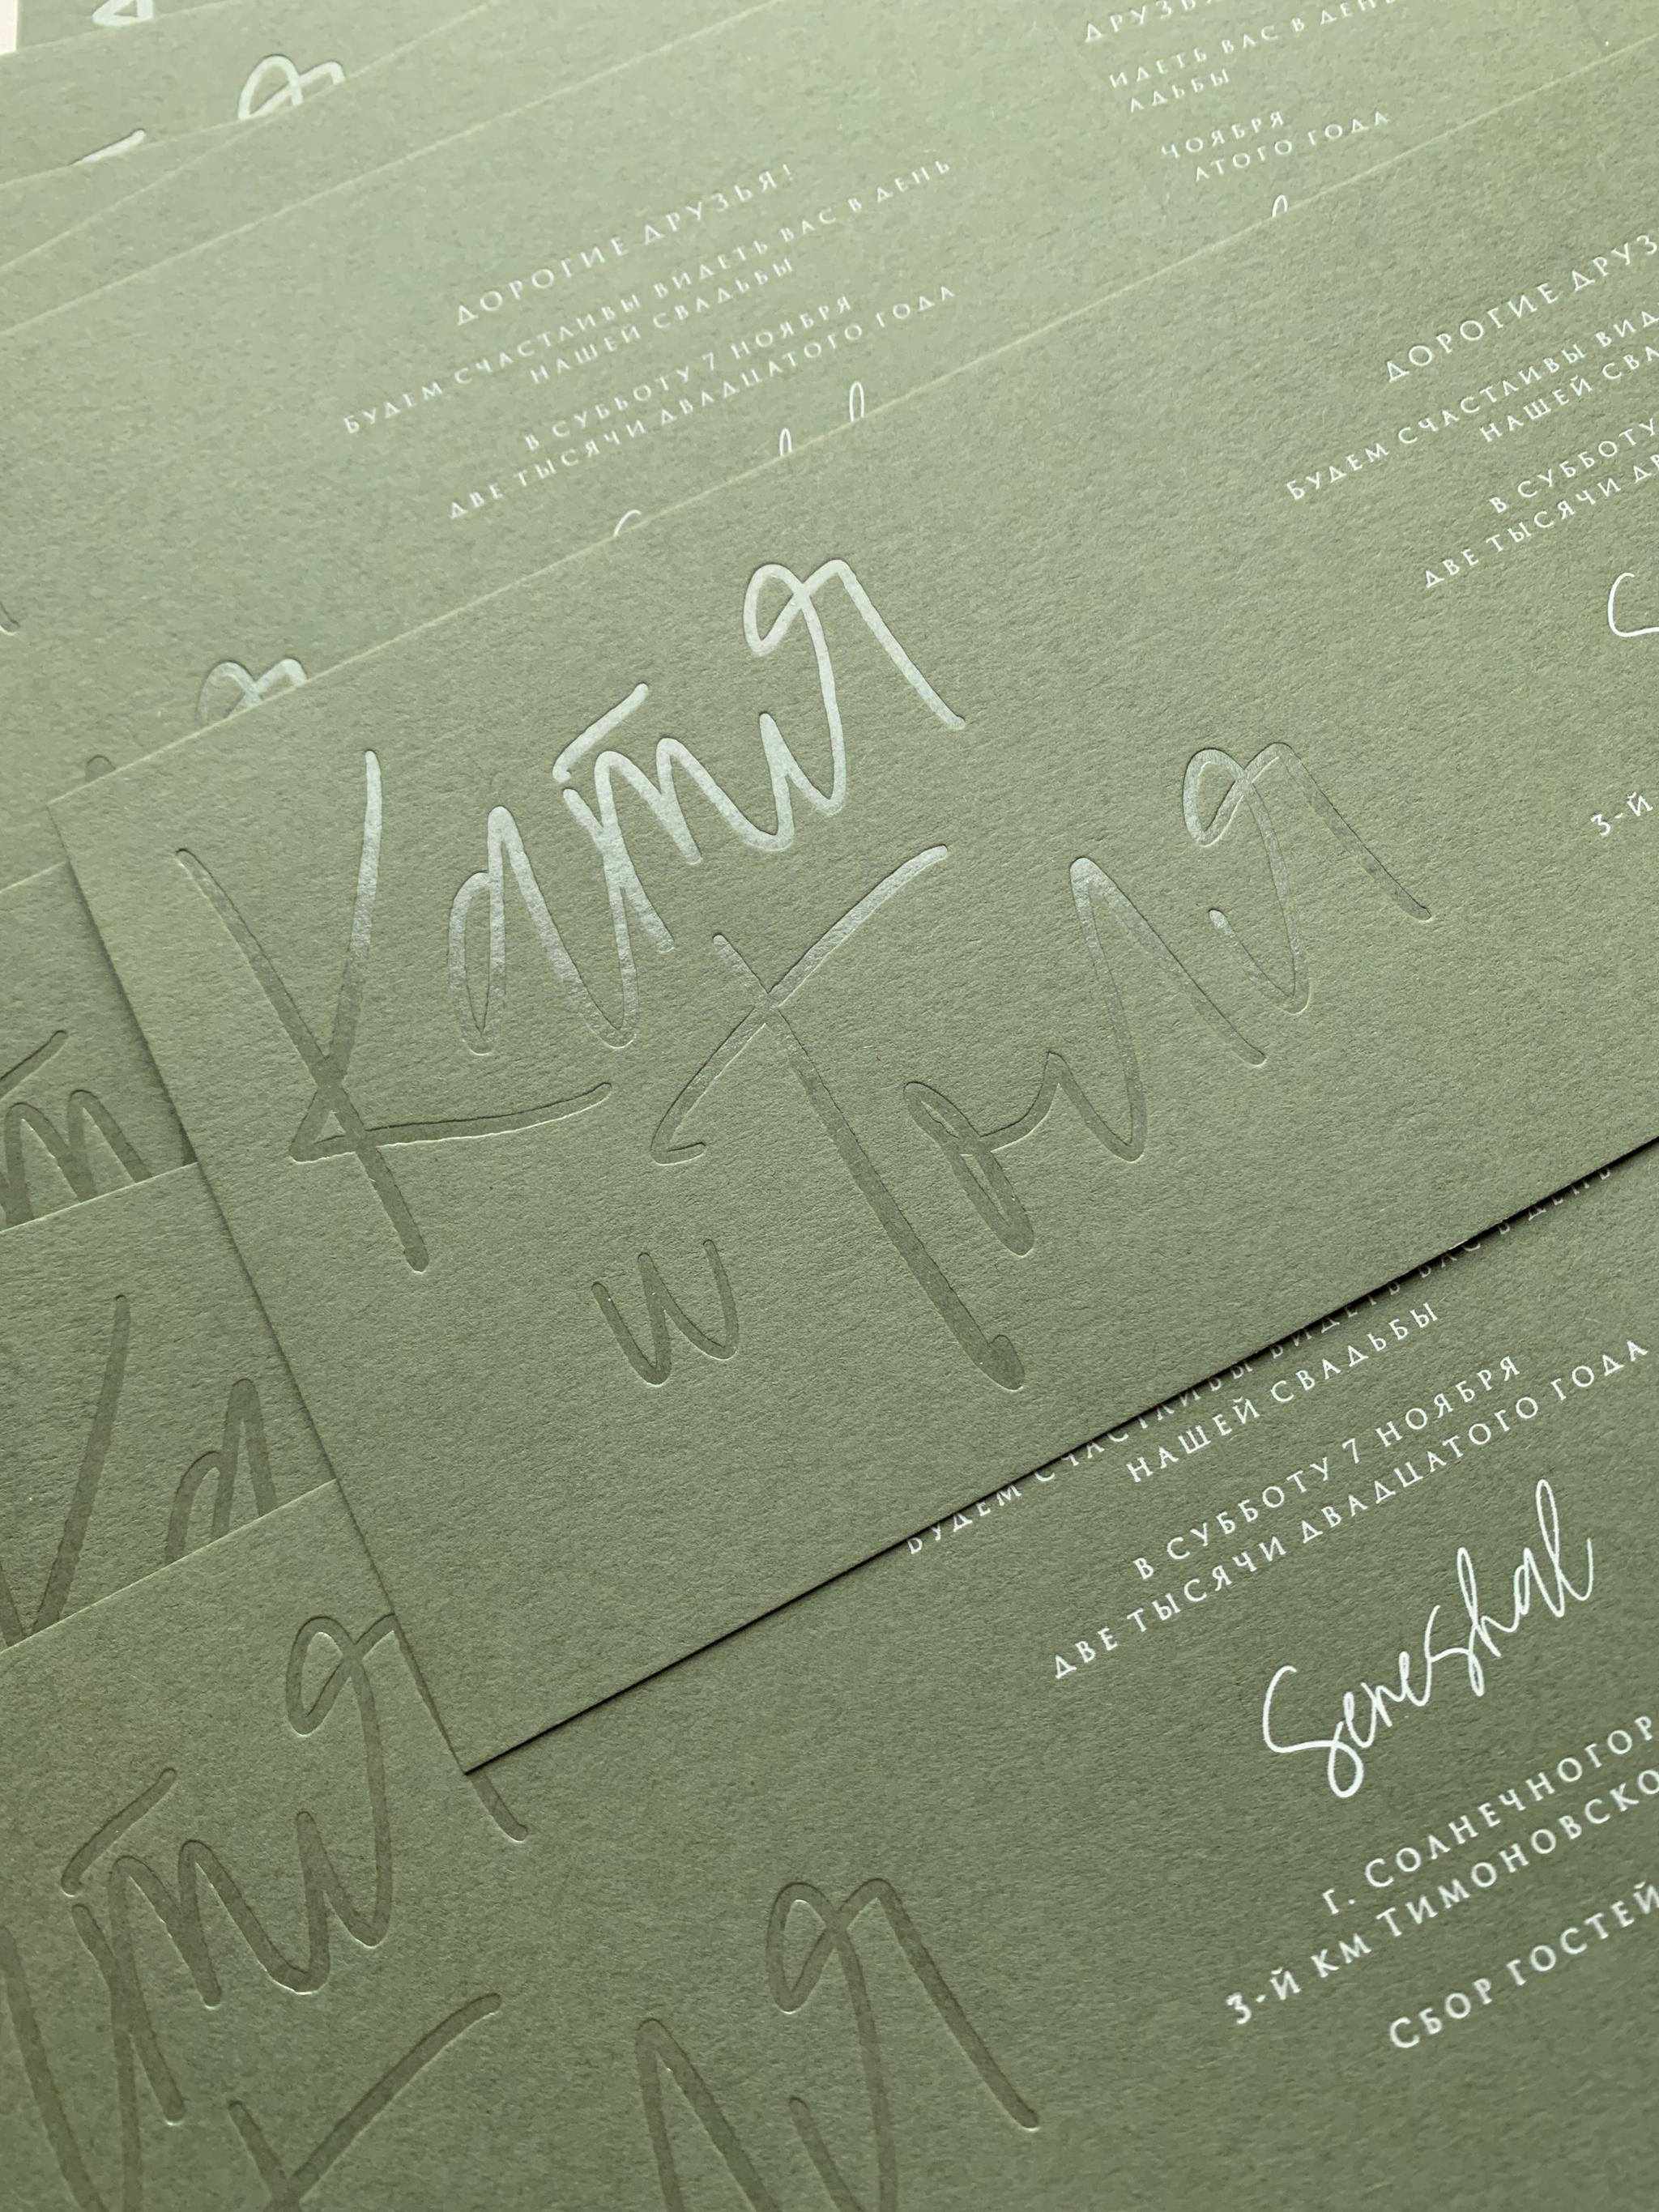 ДРУЗЬЯ
ВАС В ДЕНЬ
НОЯБРЯ
АТОГО ГОДА
ДОРОГИЕ ДРУЗЬЯ!
БУДЕМ СЧАСТЛИВЫ ВИДЕТЬ ВАС В ДЕНЬ
НАШЕЙ СВАДЬБЫ
В СУББОТУ 7 НОЯБРЯ
ДВЕ ТЫСЯЧИ ДВАДЦАТОГО ГОДА
Катя
и Толя
ДОРОГИЕ ДРУЗ
БУДЕМ СЧАСТЛИВЫ ВИД
НАШЕЙ СВА
В СУББОТУ
ДВЕ ТЫСЯЧИ ДВ
3-Й
БУДЕМ СЧАСТЛИВЫ ВИДЕТЬ ВАС В ДЕНЬ
НАШЕЙ СВАДЬБЫ
В СУББОТУ 7 НОЯБРЯ
ДВЕ ТЫСЯЧИ ДВАДЦАТОГО ГОДА
Seneshal
Г. СОЛНЕЧНОГОР
3-Й КМ ТИМОНОВСКО
СБОР ГОСТЕЙ